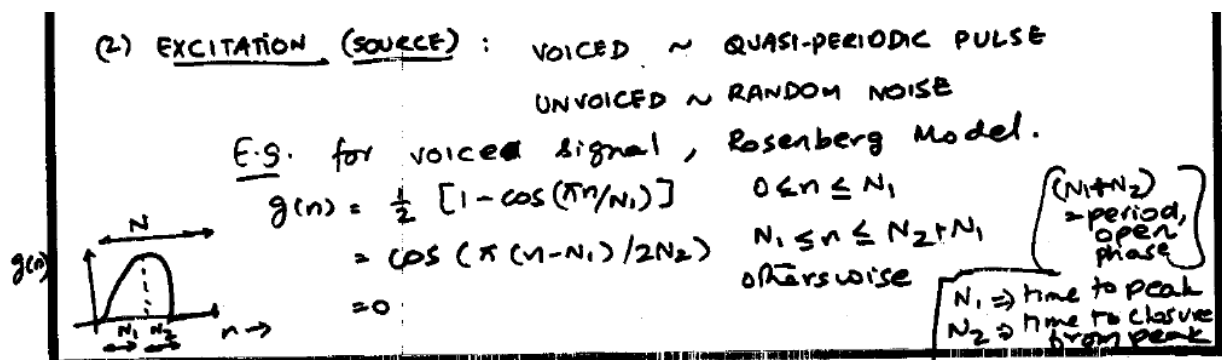 (2) EXCITATION (SOURCE) : VOICED ~ QUASI-PERIODIC PULSE
UNVOICED ~ RANDOM NOISE
E.g. for voiced signal, Rosenberg Model.
g(n) = 1/2 [1-cos(πn/N₁)] 0≤n≤N₁
= cos(π(n-N₁)/2N₂) N₁≤n≤N₂+N₁
=0 otherswise
(N₁+N₂)
=period,
open
phase
N₁ ⇒ time to peak
N₂ ⇒ time to closure
from peak
N
g(n)
N₁ N₂ n→